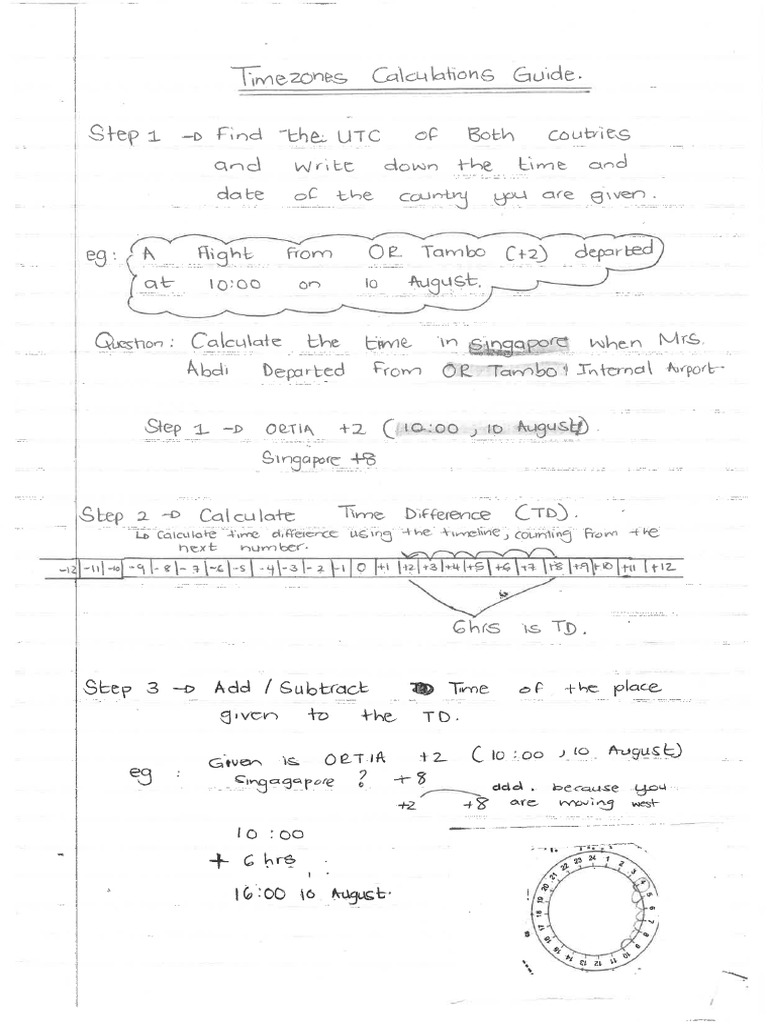 Timezones Calculations Guide.
Step 1 → Find the UTC of Both coutries
and write down the time and
date of the country you are given.
eg: A flight from OR Tambo (+2) departed
at 10:00 on 10 August.
Question: Calculate the time in Singapore when Mrs.
Abdi Departed from OR Tambo Internal Airport.
Step 1 → ORTIA +2 (10:00, 10 August)
Singapore +8
Step 2 → Calculate Time Difference (TD).
↳ Calculate time difference using the timeline, counting from the
next number.
-12 -11 -10 -9 -8 -7 -6 -5 -4 -3 -2 -1 0 +1 +2 +3 +4 +5 +6 +7 +8 +9 +10 +11 +12
6
6hrs is TD.
Step 3 → Add / Subtract Time of the place
given to the TD.
eg : Given is ORTIA +2 (10:00, 10 August)
Singagapore ? +8
add. because you
+2 +8 are moving west
10:00
+ 6 hrs
16:00 10 August.
1 2 3 4 5 6 7 8 9 10 11 12 13 14 15 16 17 18 19 20 21 22 23 24